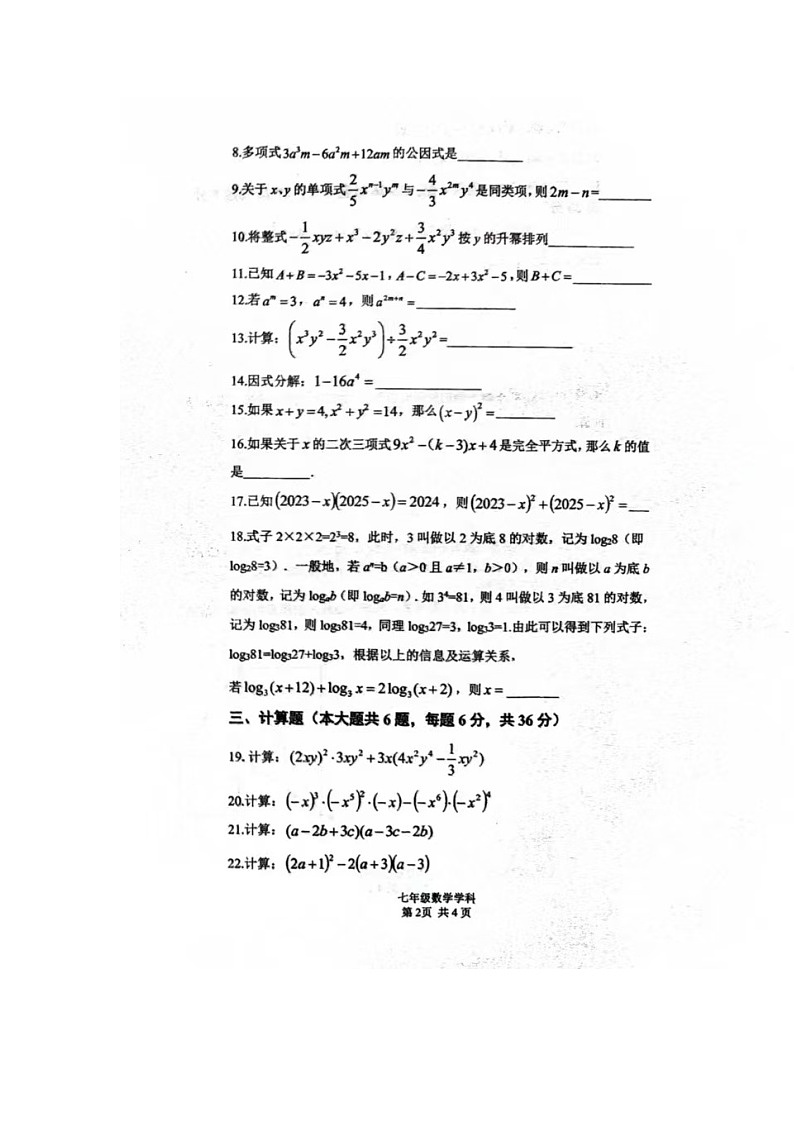 8.多项式3a³m−6a²m+12am的公因式是________
9.关于x、y的单项式2/5 xⁿ⁻¹yᵐ与−4/3 x²ᵐy⁴是同类项,则2m−n=________
10.将整式−1/2 xyz+x³−2y²z+3/4 x²y³按y的升幂排列________
11.已知A+B=−3x²−5x−1,A−C=−2x+3x²−5,则B+C=________
12.若aᵐ=3,aⁿ=4,则a²ᵐ⁺ⁿ=________
13.计算:(x³y²−3/2 x²y³)÷3/2 x²y²=________
14.因式分解:1−16a⁴=________
15.如果x+y=4,x²+y²=14,那么(x−y)²=________
16.如果关于x的二次三项式9x²−(k−3)x+4是完全平方式,那么k的值
是________.
17.已知(2023−x)(2025−x)=2024,则(2023−x)²+(2025−x)²=__
18.式子2×2×2=2³=8,此时,3叫做以2为底8的对数,记为log₂8(即
log₂8=3).一般地,若aⁿ=b(a>0且a≠1,b>0),则n叫做以a为底b
的对数,记为logₐb(即logₐb=n).如3⁴=81,则4叫做以3为底81的对数,
记为log₃81,则log₃81=4,同理log₃27=3,log₃3=1.由此可以得到下列式子:
log₃81=log₃27+log₃3,根据以上的信息及运算关系,
若log₃(x+12)+log₃x=2log₃(x+2),则x=________
三、计算题(本大题共6题,每题6分,共36分)
19.计算:(2xy)²·3xy²+3x(4x²y⁴−1/3 xy²)
20.计算:(−x)³·(−x⁵)²·(−x)−(−x⁶)·(−x²)⁴
21.计算:(a−2b+3c)(a−3c−2b)
22.计算:(2a+1)²−2(a+3)(a−3)
七年级数学学科
第2页 共4页